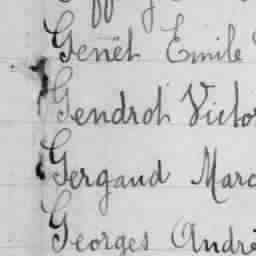 Genêt Emile
Gendrot Victo
Gergaud Marc
Georges André